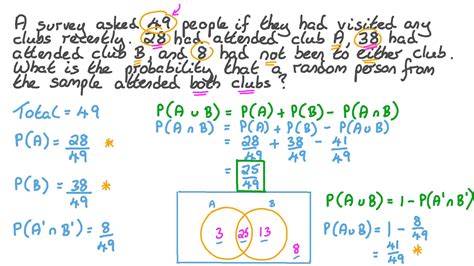 A survey asked 49 people if they had visited any
clubs recently. 28 had attended club A, 38 had
attended club B, and 8 had not been to either club.
What is the probability that a random person from
the sample attended both clubs?
Total = 49
P(A) = 28/49 *
P(B) = 38/49 *
P(A'∩B') = 8/49
P(A∪B) = P(A) + P(B) - P(A∩B)
P(A∩B) = P(A) + P(B) - P(A∪B)
= 28/49 + 38/49 - 41/49
= 25/49
A B
3 25 13
8
P(A∪B) = 1 - P(A'∩B')
P(A∪B) = 1 - 8/49
= 41/49 *